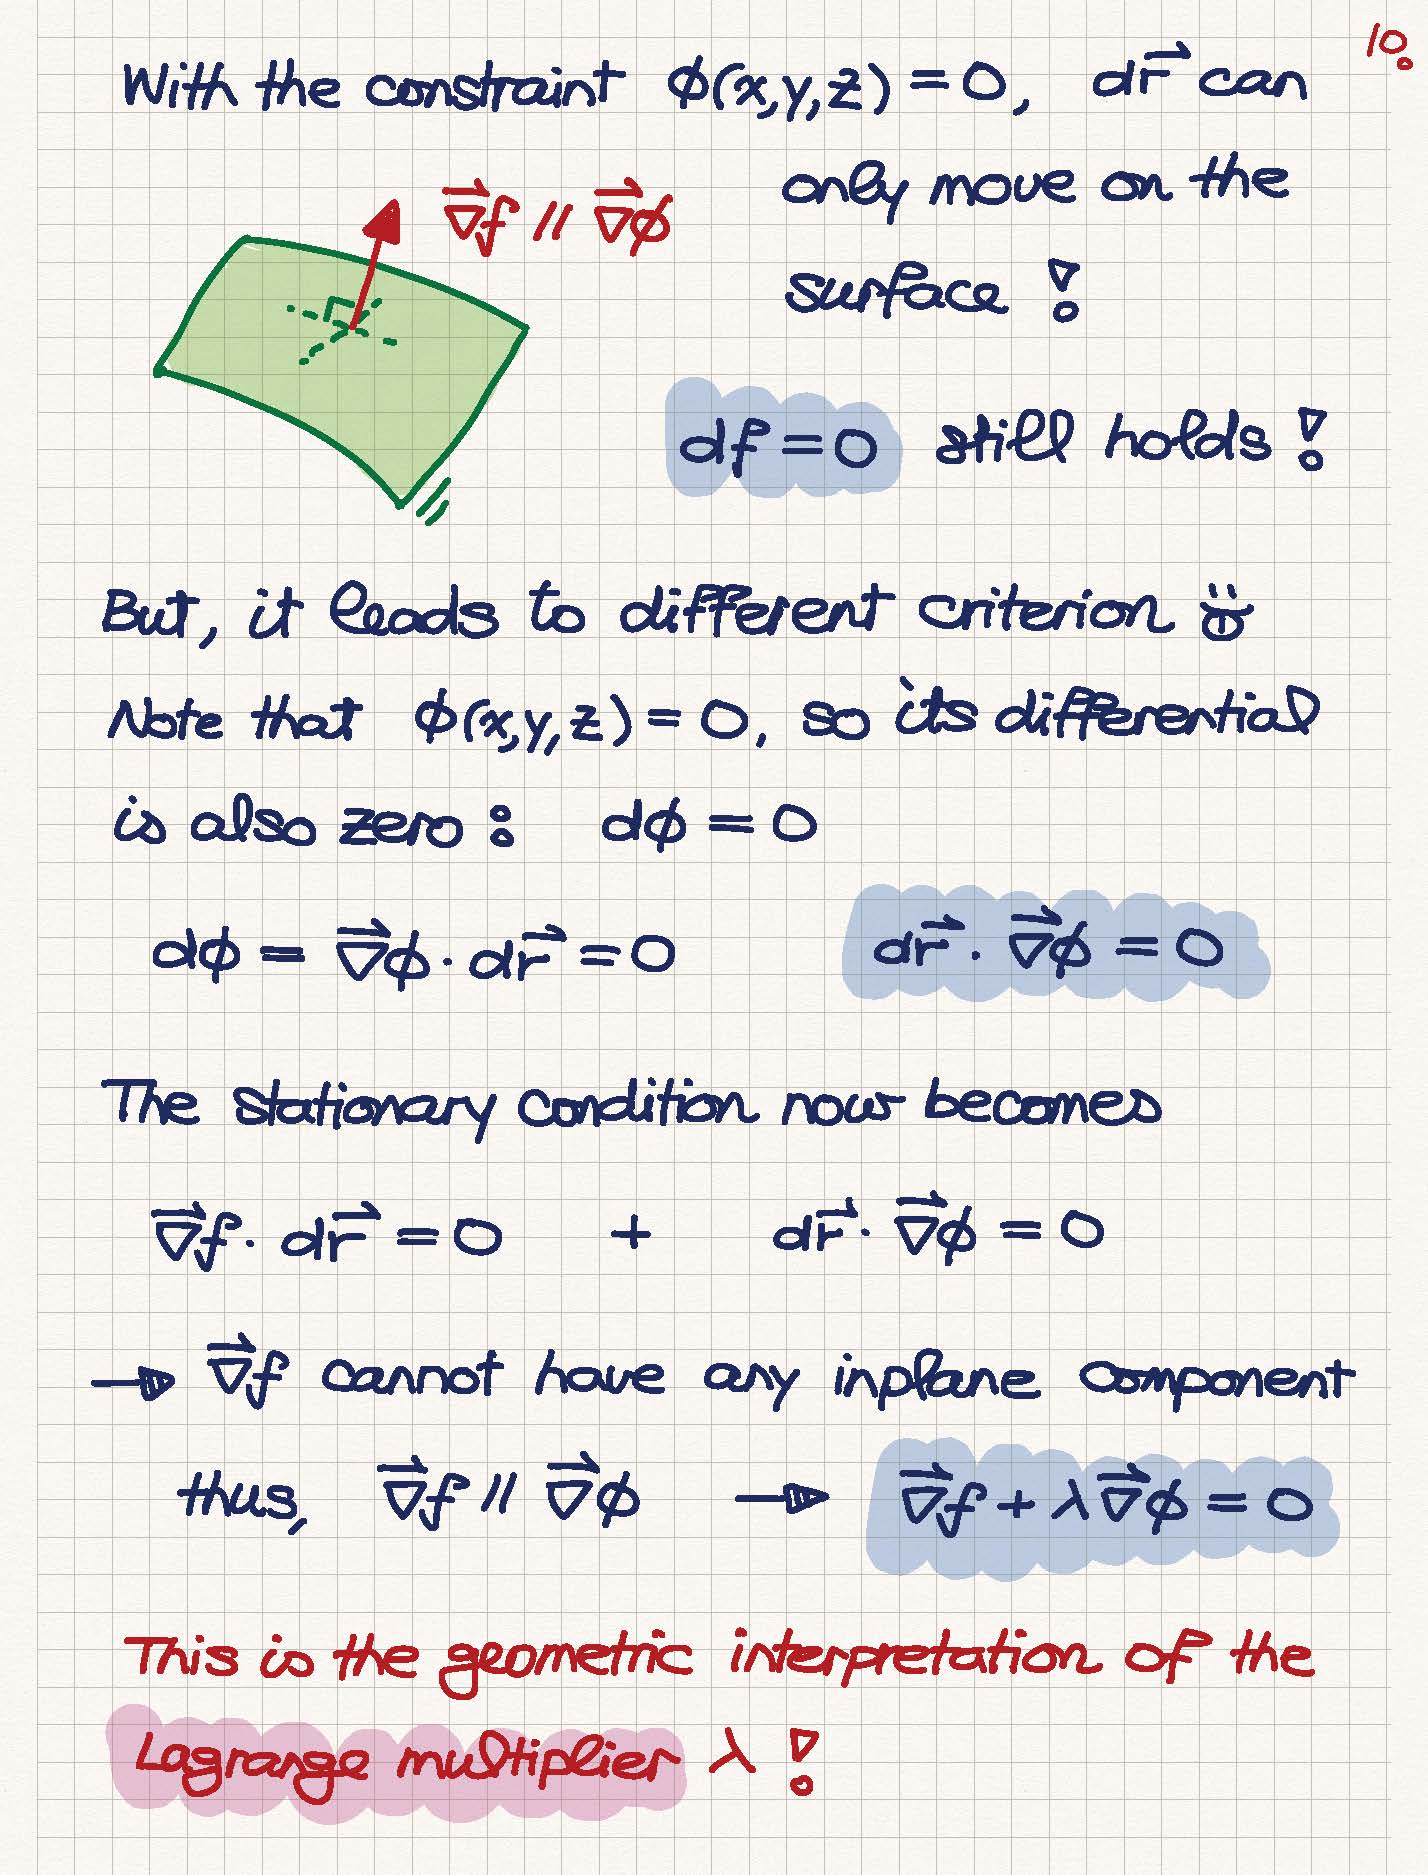 10.
With the constraint ϕ(x,y,z) = 0, d\vec{r} can
only move on the
surface !
\vec{∇}f // \vec{∇}ϕ
df = 0 still holds !
But, it leads to different criterion
Note that ϕ(x,y,z) = 0, so its differential
is also zero : dϕ = 0
dϕ = \vec{∇}ϕ · d\vec{r} = 0 d\vec{r} · \vec{∇}ϕ = 0
The stationary condition now becomes
\vec{∇}f · d\vec{r} = 0 + d\vec{r} · \vec{∇}ϕ = 0
→ \vec{∇}f cannot have any inplane component
thus, \vec{∇}f // \vec{∇}ϕ → \vec{∇}f + λ\vec{∇}ϕ = 0
This is the geometric interpretation of the
Lagrange multiplier λ !